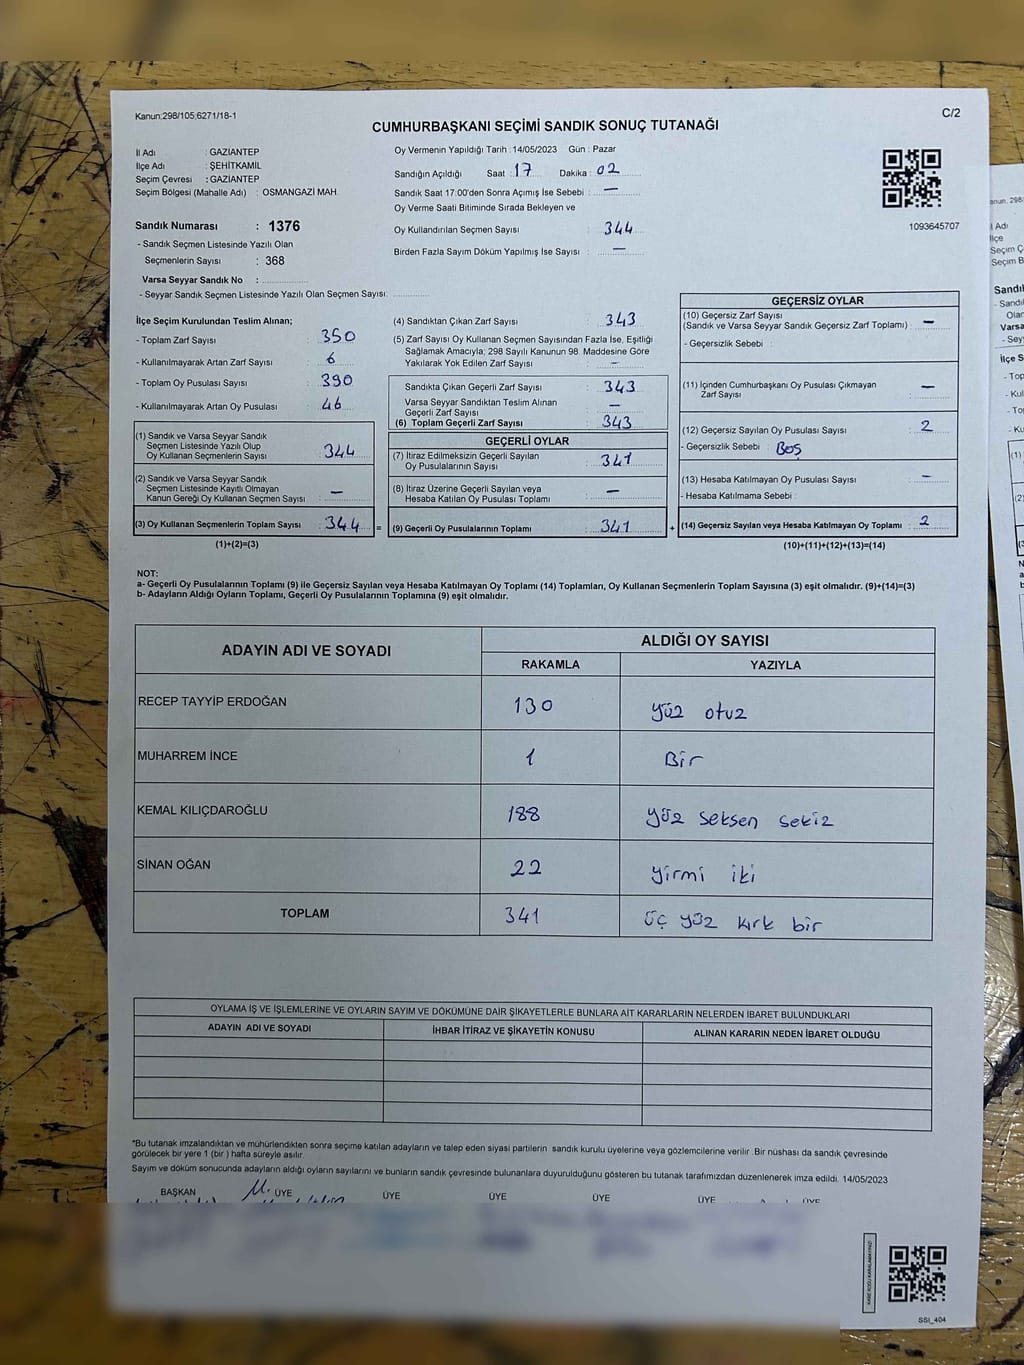 Kanun:298/105;6271/18-1
C/2
CUMHURBAŞKANI SEÇİMİ SANDIK SONUÇ TUTANAĞI
İl Adı : GAZİANTEP
İlçe Adı : ŞEHİTKAMİL
Seçim Çevresi : GAZİANTEP
Seçim Bölgesi (Mahalle Adı) : OSMANGAZİ MAH.
Oy Vermenin Yapıldığı Tarih : 14/05/2023 Gün : Pazar
Sandığın Açıldığı Saat : 17 Dakika : 02
Sandık Saat 17:00'den Sonra Açılmış İse Sebebi : —
Oy Verme Saati Bitiminde Sırada Bekleyen ve
Oy Kullandırılan Seçmen Sayısı : 344
Birden Fazla Sayım Döküm Yapılmış İse Sayısı : —
1093645707
Sandık Numarası : 1376
- Sandık Seçmen Listesinde Yazılı Olan
Seçmenlerin Sayısı : 368
Varsa Seyyar Sandık No :
- Seyyar Sandık Seçmen Listesinde Yazılı Olan Seçmen Sayısı:
İlçe Seçim Kurulundan Teslim Alınan;
- Toplam Zarf Sayısı : 350
- Kullanılmayarak Artan Zarf Sayısı : 6
- Toplam Oy Pusulası Sayısı : 390
- Kullanılmayarak Artan Oy Pusulası : 46
(1) Sandık ve Varsa Seyyar Sandık
Seçmen Listesinde Yazılı Olup
Oy Kullanan Seçmenlerin Sayısı : 344
(2) Sandık ve Varsa Seyyar Sandık
Seçmen Listesinde Kayıtlı Olmayan
Kanun Gereği Oy Kullanan Seçmen Sayısı : —
(3) Oy Kullanan Seçmenlerin Toplam Sayısı : 344 =
(1)+(2)=(3)
(4) Sandıktan Çıkan Zarf Sayısı : 343
(5) Zarf Sayısı Oy Kullanan Seçmen Sayısından Fazla İse, Eşitliği
Sağlamak Amacıyla; 298 Sayılı Kanunun 98. Maddesine Göre
Yakılarak Yok Edilen Zarf Sayısı : —
Sandıkta Çıkan Geçerli Zarf Sayısı : 343
Varsa Seyyar Sandıktan Teslim Alınan
Geçerli Zarf Sayısı : —
(6) Toplam Geçerli Zarf Sayısı : 343
GEÇERLİ OYLAR
(7) İtiraz Edilmeksizin Geçerli Sayılan
Oy Pusulalarının Sayısı : 341
(8) İtiraz Üzerine Geçerli Sayılan veya
Hesaba Katılan Oy Pusulası Toplamı : —
(9) Geçerli Oy Pusulalarının Toplamı : 341 +
GEÇERSİZ OYLAR
(10) Geçersiz Zarf Sayısı
(Sandık ve Varsa Seyyar Sandık Geçersiz Zarf Toplamı) : —
- Geçersizlik Sebebi :
(11) İçinden Cumhurbaşkanı Oy Pusulası Çıkmayan
Zarf Sayısı : —
(12) Geçersiz Sayılan Oy Pusulası Sayısı : 2
- Geçersizlik Sebebi : Boş
(13) Hesaba Katılmayan Oy Pusulası Sayısı : —
- Hesaba Katılmama Sebebi :
(14) Geçersiz Sayılan veya Hesaba Katılmayan Oy Toplamı : 2
(10)+(11)+(12)+(13)=(14)
NOT:
a- Geçerli Oy Pusulalarının Toplamı (9) ile Geçersiz Sayılan veya Hesaba Katılmayan Oy Toplamı (14) Toplamları, Oy Kullanan Seçmenlerin Toplam Sayısına (3) eşit olmalıdır. (9)+(14)=(3)
b- Adayların Aldığı Oyların Toplamı, Geçerli Oy Pusulalarının Toplamına (9) eşit olmalıdır.
ADAYIN ADI VE SOYADI ALDIĞI OY SAYISI
RAKAMLA YAZIYLA
RECEP TAYYİP ERDOĞAN 130 yüz otuz
MUHARREM İNCE 1 Bir
KEMAL KILIÇDAROĞLU 188 yüz seksen sekiz
SİNAN OĞAN 22 yirmi iki
TOPLAM 341 üç yüz kırk bir
OYLAMA İŞ VE İŞLEMLERİNE VE OYLARIN SAYIM VE DÖKÜMÜNE DAİR ŞİKAYETLERLE BUNLARA AİT KARARLARIN NELERDEN İBARET BULUNDUKLARI
ADAYIN ADI VE SOYADI İHBAR İTİRAZ VE ŞİKAYETİN KONUSU ALINAN KARARIN NEDEN İBARET OLDUĞU
*Bu tutanak imzalandıktan ve mühürlendikten sonra seçime katılan adayların ve talep eden siyasi partilerin sandık kurulu üyelerine veya gözlemcilerine verilir. Bir nüshası da sandık çevresinde
görülecek bir yere 1 (bir ) hafta süreyle asılır.
Sayım ve döküm sonucunda adayların aldığı oyların sayılarını ve bunların sandık çevresinde bulunanlara duyurulduğunu gösteren bu tutanak tarafımızdan düzenlenerek imza edildi. 14/05/2023
BAŞKAN ÜYE ÜYE ÜYE ÜYE ÜYE ÜYE
SSI_404